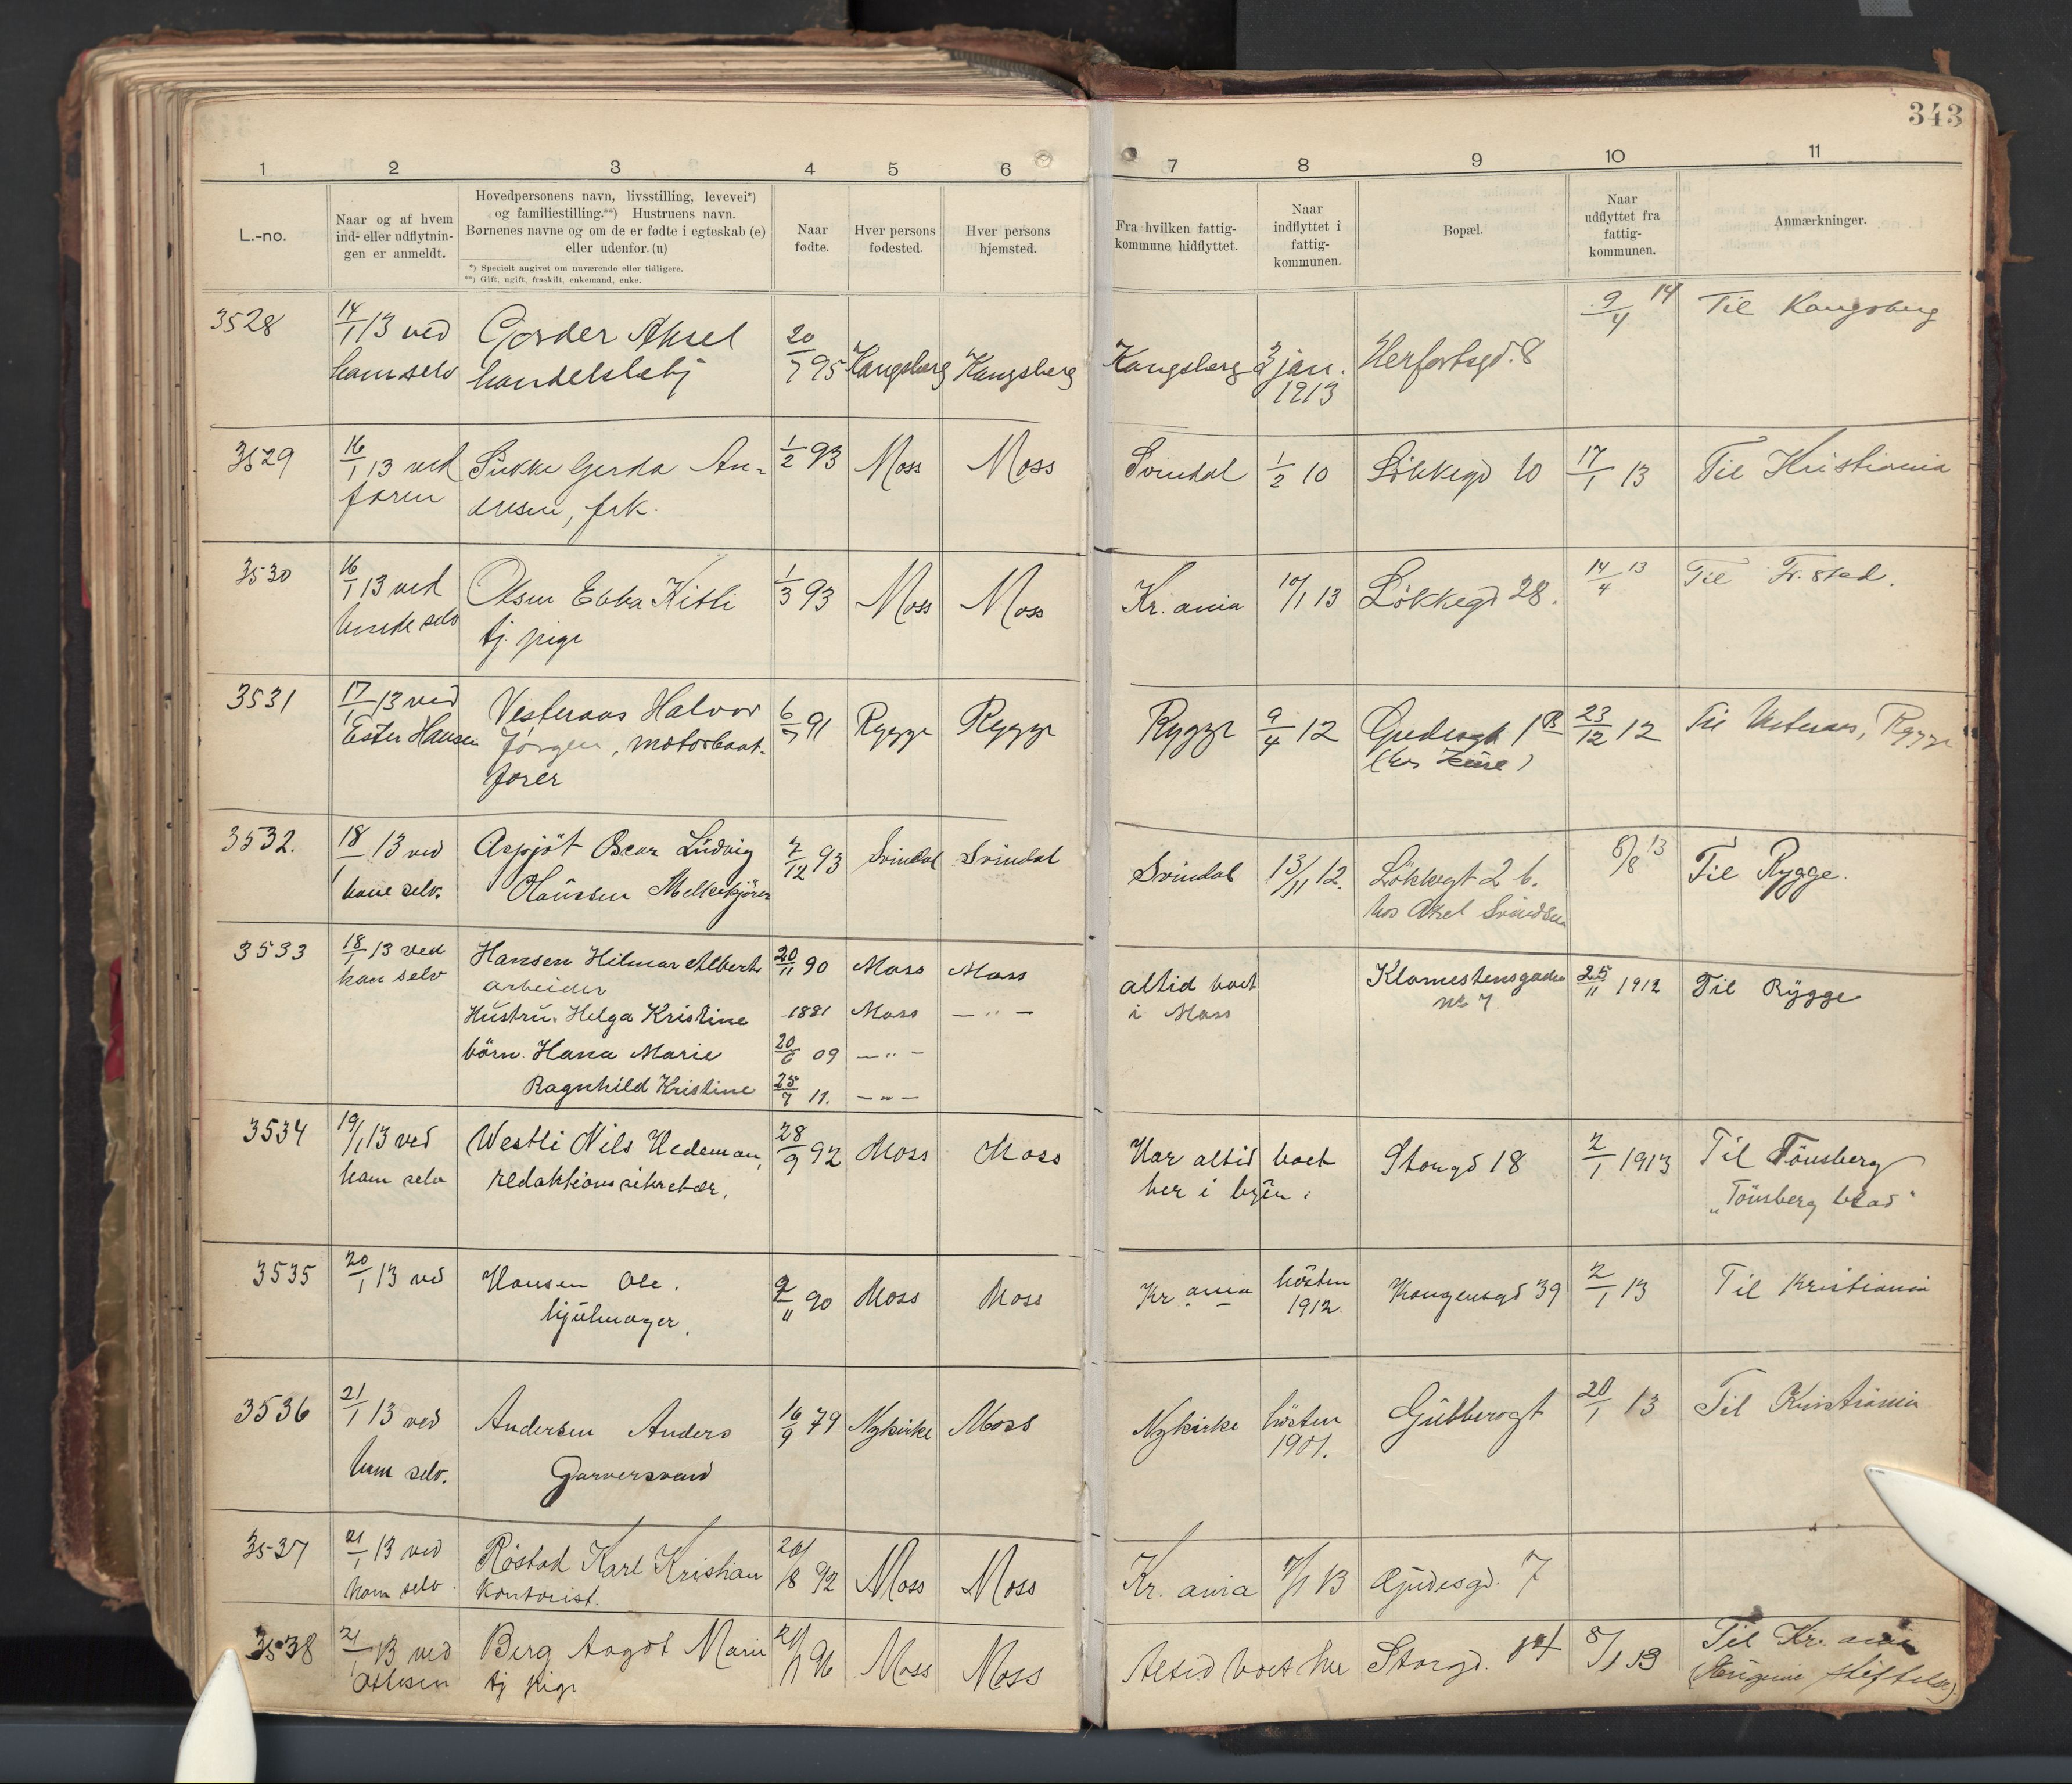 343
1 2 3 4 5 6 7 8 9 10 11
L.-no.
Naar og af hvem
ind- eller udflytnin-
gen er anmeldt.
Hovedpersonens navn, livsstilling, levevei*)
og familiestilling.**) Hustruens navn.
Børnenes navne og om de er fødte i egteskab (e)
eller udenfor. (u)
*) Specielt angivet om nuværende eller tidligere.
**) Gift, ugift, fraskilt, enkemand, enke.
Naar
fødte.
Hver persons
fødested.
Hver persons
hjemsted.
Fra hvilken fattig-
kommune hidflyttet.
Naar
indflyttet i
fattig-
kommunen.
Bopæl.
Naar
udflyttet fra
fattig-
kommunen.
Anmærkninger.
3528 14/1 13 ved Aksel 20/7 95 Kongsberg Kongsberg Kongsberg jan. Herfortsgd. 8 9/4 14 Til Kongsberg
ham selv handelsbetj 1913
3529 16/1 13 ved Gerda An- 1/2 93 Moss Moss Svindal 1/2 10 Løkkegd 10 17/1 13 Til Kristiania
faren dresen, frk.
3530 16/1 13 ved Olsen Ebba Kitli 1/3 93 Moss Moss Kr. ania 10/1 13 Løkkegd 28. 14/4 13 Til Fr. stad.
hende selv tj. pige
3531 17/1 13 ved Vesteraas Halvor 6/7 91 Rygge Rygge Rygge 9/4 12 Gudesgt 1 B 23/12 12 Til Vesteraas, Rygge
Ester Hansen Jørgen, motorbaat- (hos )
fører
3532. 18/1 13 ved Oscar Ludvig 7/12 93 Svindal Svindal Svindal 13/11 12. Løkkegt 2 b. 8/8 13 Til Rygge.
ham selv. Hanssen Melkekjører hos Aksel Svindsen
3533 18/1 13 ved Hansen Hilmar Albert 20/11 90 Moss Moss altid boet Klomestensgaden 25/11 1912 Til Rygge
ham selv arbeider i Moss No 7
Hustru. Helga Kristine 1881 Moss — " —
børn. Hana Marie 20/6 09 — " —
Ragnhild Kristine 25/7 11. — " —
3534 19/1 13 ved Westli Nils Hedeman, 28/9 92 Moss Moss Har altid boet Storgd 18 2/1 1913 Til Tønsberg
ham selv redaktionssekretær, her i byen. „Tønsberg blad"
3535 20/1 13 ved Hansen Ole. 2/11 90 Moss Moss Kr. ania høsten Kongensgd 39 2/1 13 Til Kristiania
hjulmager. 1912.
3536 21/1 13 ved Andersen Anders 16/9 79 Nykirke Moss Nykirke høsten Gubberogt 20/1 13 Til Kristiania
ham selv. Garversvend 1901.
3537 21/1 13 ved Røstad Karl Kristian 20/8 92 Moss Moss Kr. ania 7/1 13 Gudesgd. 7
ham selv. kontorist.
3538 21/1 13 ved Berg Aagot Marie 21/1 96 Moss Moss Altid boet her Storgd. 14 8/1 13 Til Kr. ania
tj pige (Eugenie stiftelse)